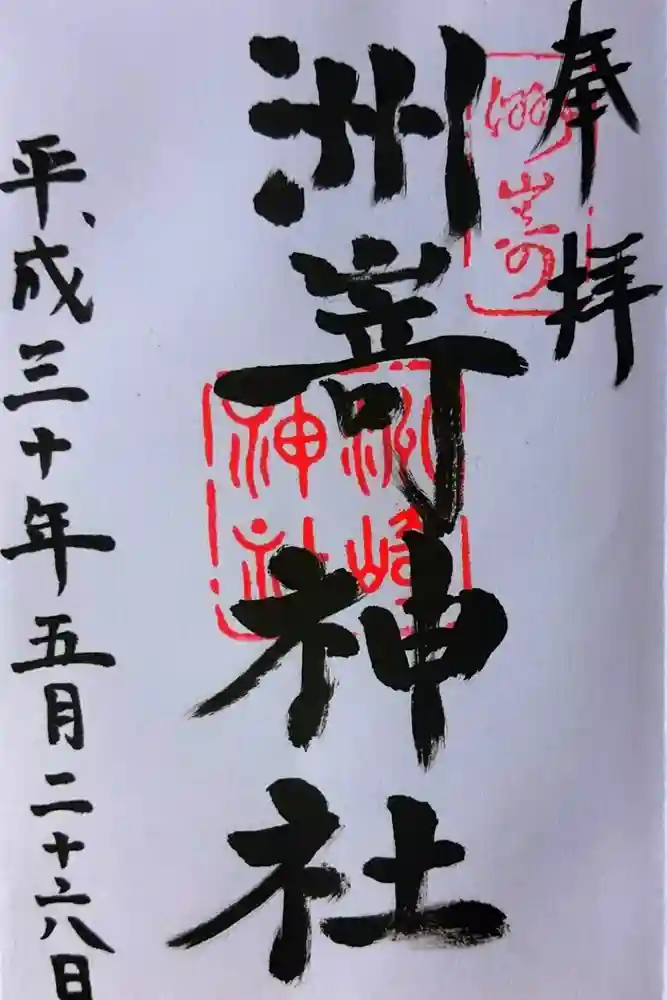 奉拝
洲嵜神社
平成三十年五月二十六日
洲崎
神社